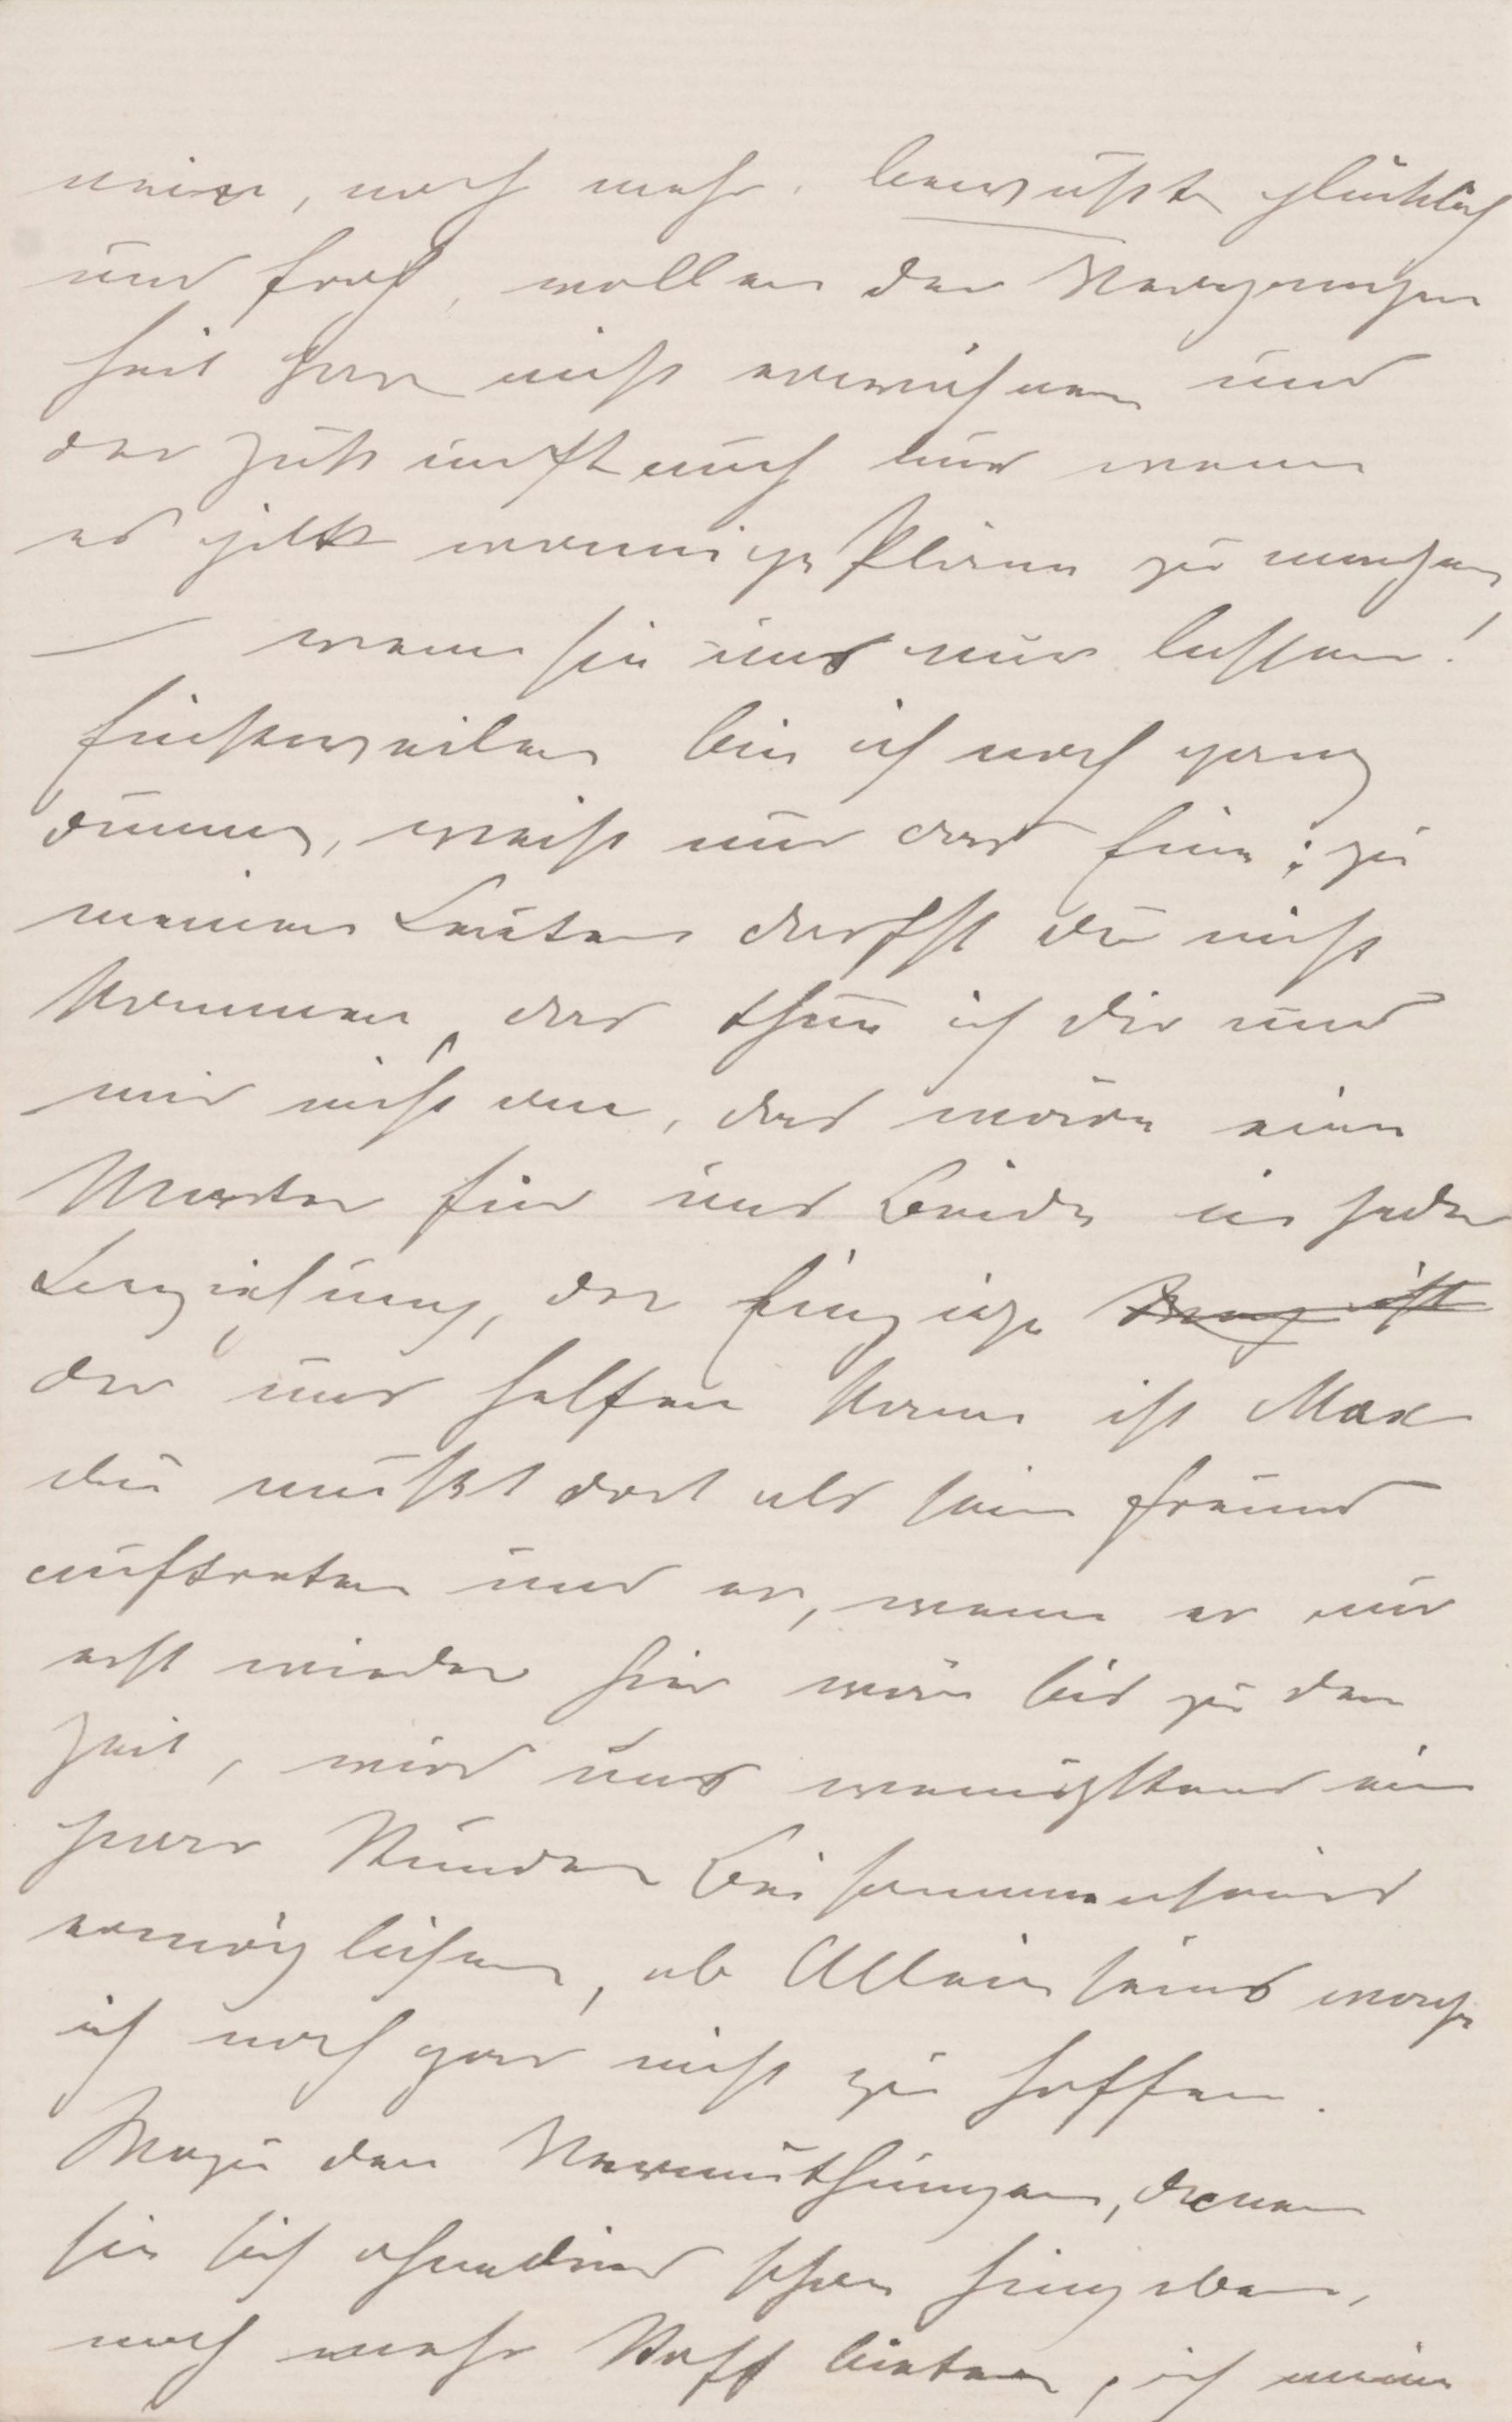 nein, noch mehr, bewußte glücklich
und froh, wollen der Vergangen
heit gar nicht erwähnen und
der Zukunft auch nur wenn
es gilt wonnige Pläne zu machen
— wenn sie uns nur lassen!
Einstweilen bin ich noch ganz
dumm, weiß nur das Eine; zu
meinen Leuten darfst du nicht
kommen, das thue ich dir und
mir nicht an, das wäre eine
Marter für uns Beide in jeder
Beziehung, der Einzige
der uns helfen kann ist Max
du mußt dort als sein Freund
auftreten und er, wenn er nur
erst wieder hier wäre bis zu der
Zeit, wird uns wenigstens ein
paar Stunden Beisammenseins
ermöglichen, ob Alleinseins wage
ich noch gar nicht zu hoffen.
Wozu den Vermuthungen, denen
sie sich ohnedies schon hingeben,
noch mehr Stoff bieten, ich meine